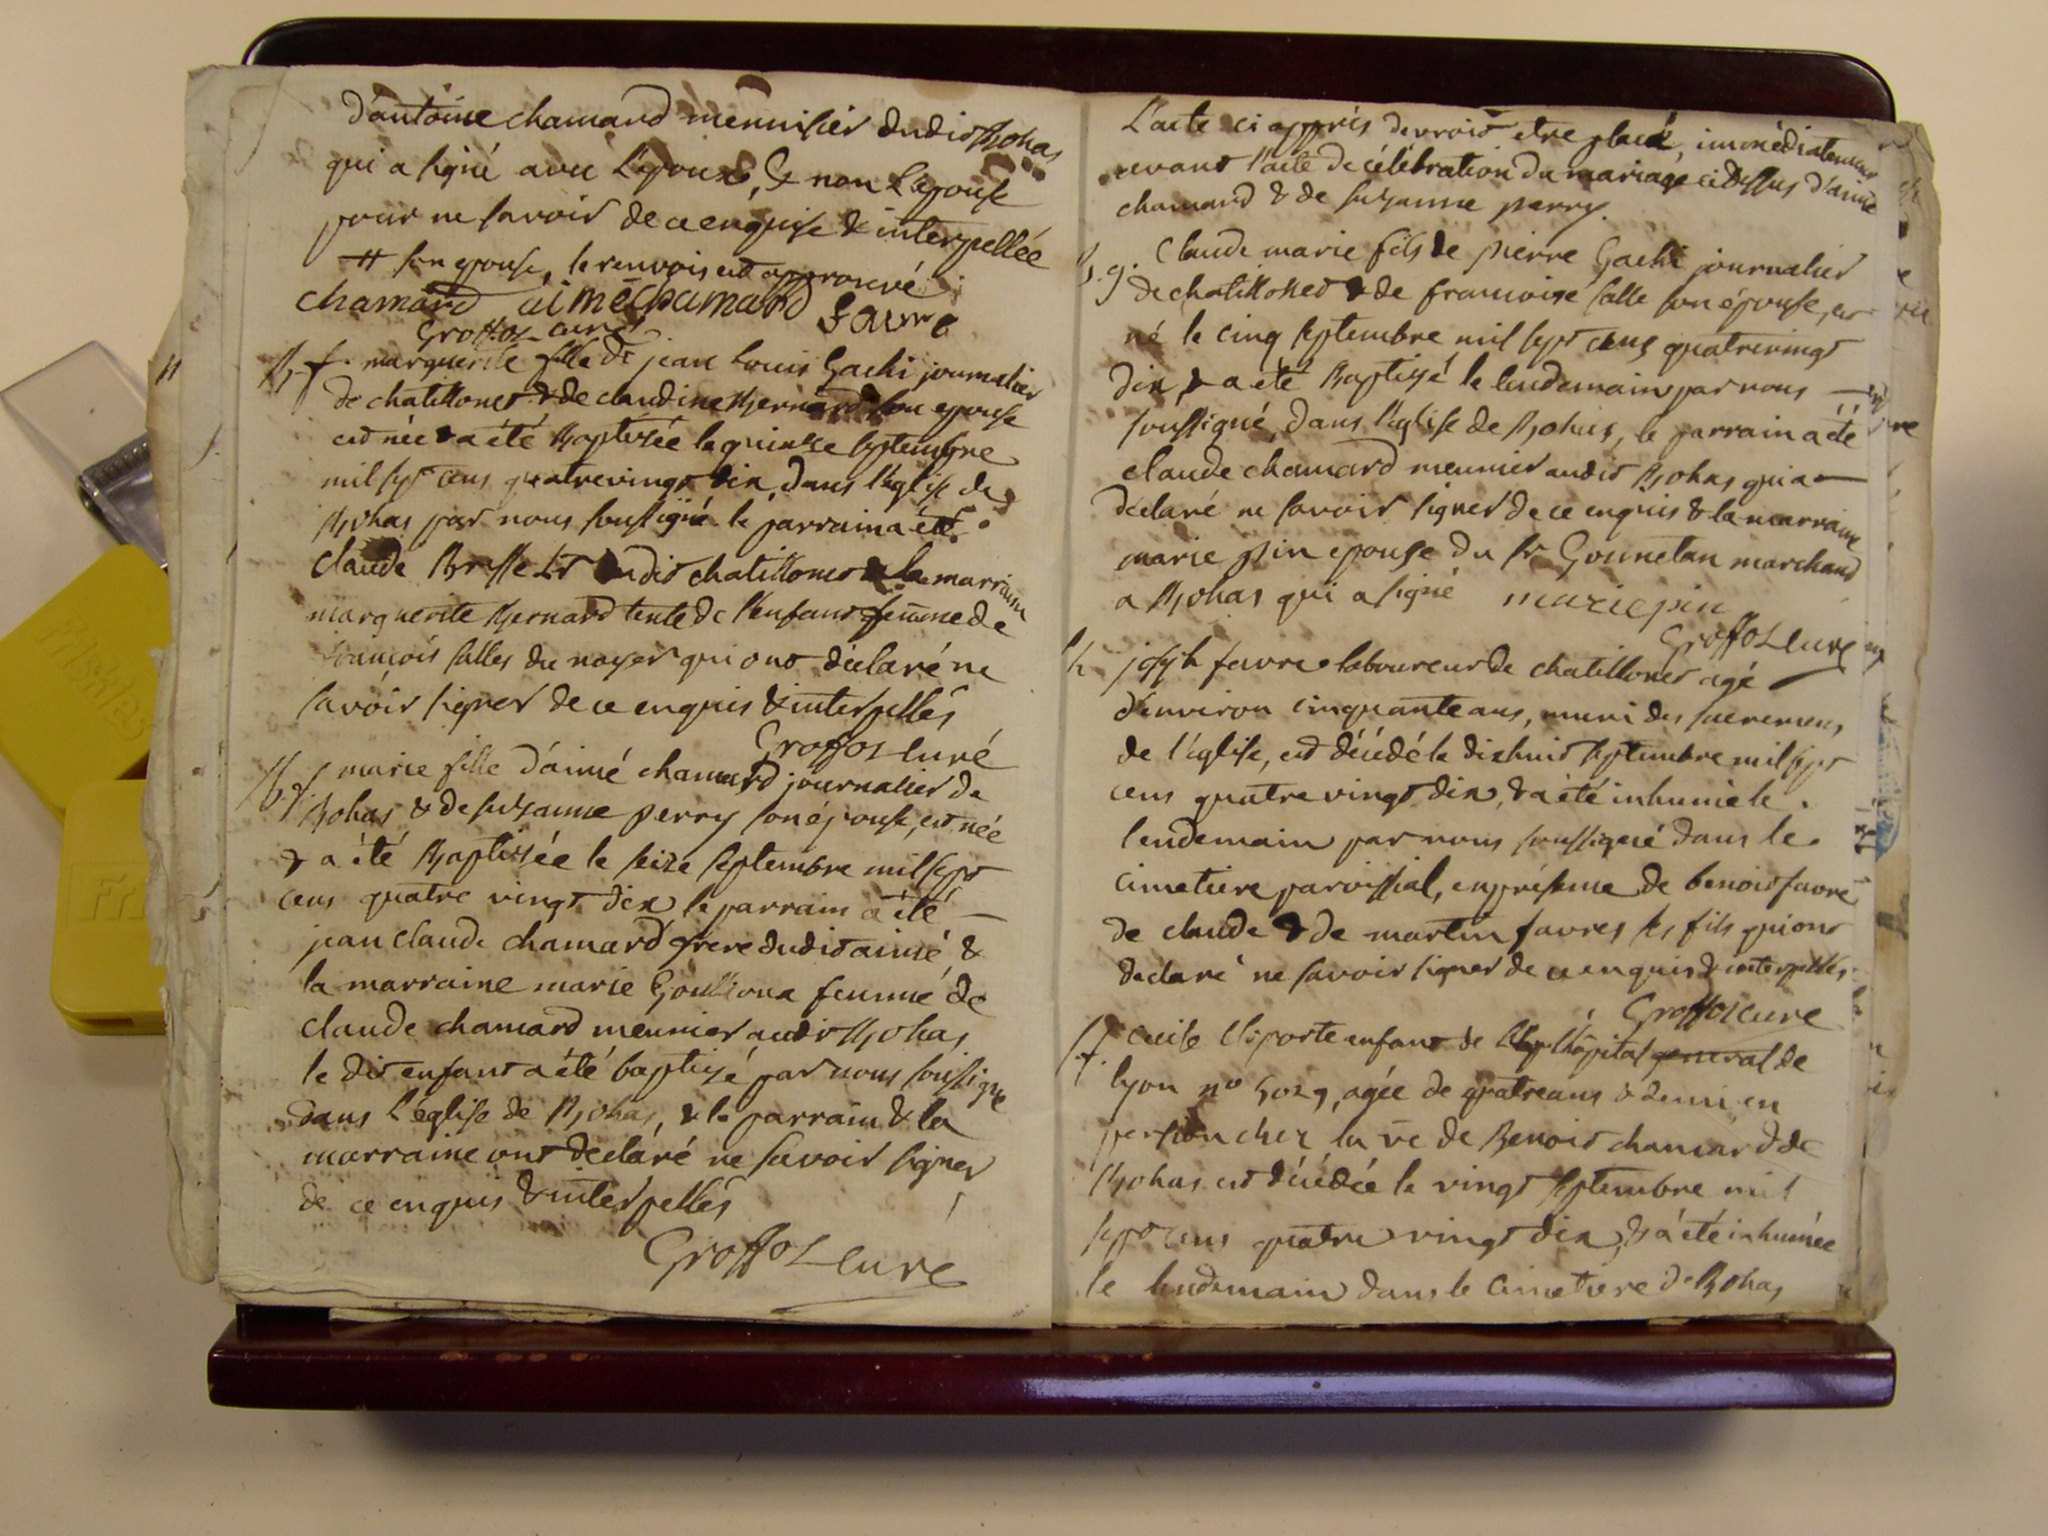 d'antoine chamard mennisier dudit Bohas
qui a signé avec l'epoux, & non l'epouse
pour ne savoir de ce enquise & interpellée
# son epouse, le renvois est approuvé
chamard aimé chamard favre
Groffoz curé
B. f. marguerite fille de jean Louis Gachi journalier
de chatillonet & de claudine Bernard son epouse
est née & a été Baptisée le quinze septembre
mil sept cens quatrevingt dix, dans l'eglise de
Bohas par nous soussigné le parrain a été
claude Brasselet dudit chatillonet & la marraine
marguerite Bernard tente de l'enfant femme de
francois salles du noyer qui ont déclaré ne
savoir signer de ce enquis & interpellés
Groffoz curé
B. f. marie fille d'aimé chamard journalier de
Bohas & de suzanne perry son épouse, est née
& a été Baptisée le seize septembre mil sept
cens quatre vingt dix le parrain a été
jean claude chamard frere dudit aimé &
la marraine marie femme de
claude chamard meunier audit Bohas
le dit enfant a été baptisé par nous soussigné
dans l'église de Bohas, & le parrain & la
marraine ont déclaré ne savoir signer
de ce enquis & interpellés
Groffoz curé
L'acte ci appris devroit etre placé, immédiatement
avant l'acte de célébration du mariage ci dessus d'aimé
chamard & de suzanne perry.
B. g. Claude marie fils de pierre Gachi journalier
de chatillonet & de francoise salle son épouse, est
né le cinq septembre mil sept cens quatrevingt
dix, & a été Baptisé le lendemain par nous
soussigné, dans l'eglise de Bohas, le parrain a été
claude chamard meunier audit Bohas qui a
déclaré ne savoir signer de ce enquis & la marraine
marie pin epouse du sr. Gonnetan marchand
a Bohas qui a signé marie pin
Groffoz curé
h joseph favre laboureur de chatillonet agé
d'environ cinquante ans, muni des sacremens
de l'église, est décédé le dixhuit septembre mil sept
cens quatre vingt dix, & a été inhumé le
lendemain par nous soussigné dans le
cimetiere paroissial, en présence de benoit favre
de claude & de martin favres ses fils qui ont
declaré ne savoir signer de ce enquis & interpellés
Groffoz curé
f. cecile enfant de l'hôpital general de
lyon no 5029, agée de quatre ans & demi, en
pension chez la ve de Benoit chamard de
Bohas est décédée le vingt septembre mil
sept cens quatre vingt dix, & a été inhumée
le lendemain dans le cimetiere de Bohas